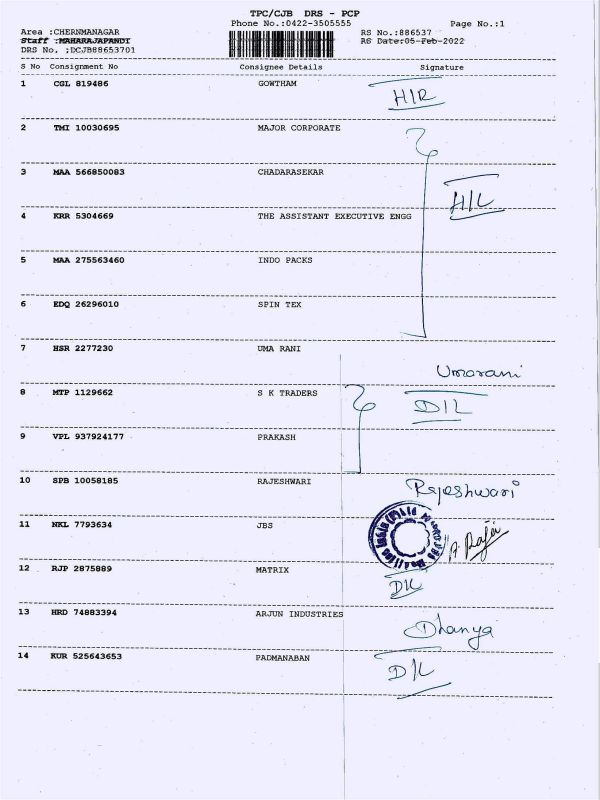 TPC/CJB DRS - PCP
Phone No.:0422-3505555 Page No.:1
Area :CHERNMANAGAR RS No.:886537
Staff :MAHARAJAPANDI RS Date:05-Feb-2022
DRS No. :DCJB88653701
S No Consignment No Consignee Details Signature
1 CGL 819486 GOWTHAM
H/R
2 TMI 10030695 MAJOR CORPORATE
3 MAA 566850083 CHADARASEKAR
H/L
4 KRR 5304669 THE ASSISTANT EXECUTIVE ENGG
5 MAA 275563460 INDO PACKS
6 EDQ 26296010 SPIN TEX
7 HSR 2277230 UMA RANI
Umarani
8 MTP 1129662 S K TRADERS D/L
9 VPL 937924177 PRAKASH
10 SPB 10058185 RAJESHWARI Rajeshwari
11 NKL 7793634 JBS
12 RJP 2875889 MATRIX
D/L
13 HRD 74883394 ARJUN INDUSTRIES
Dhanya
14 KUR 525643653 PADMANABAN D/L